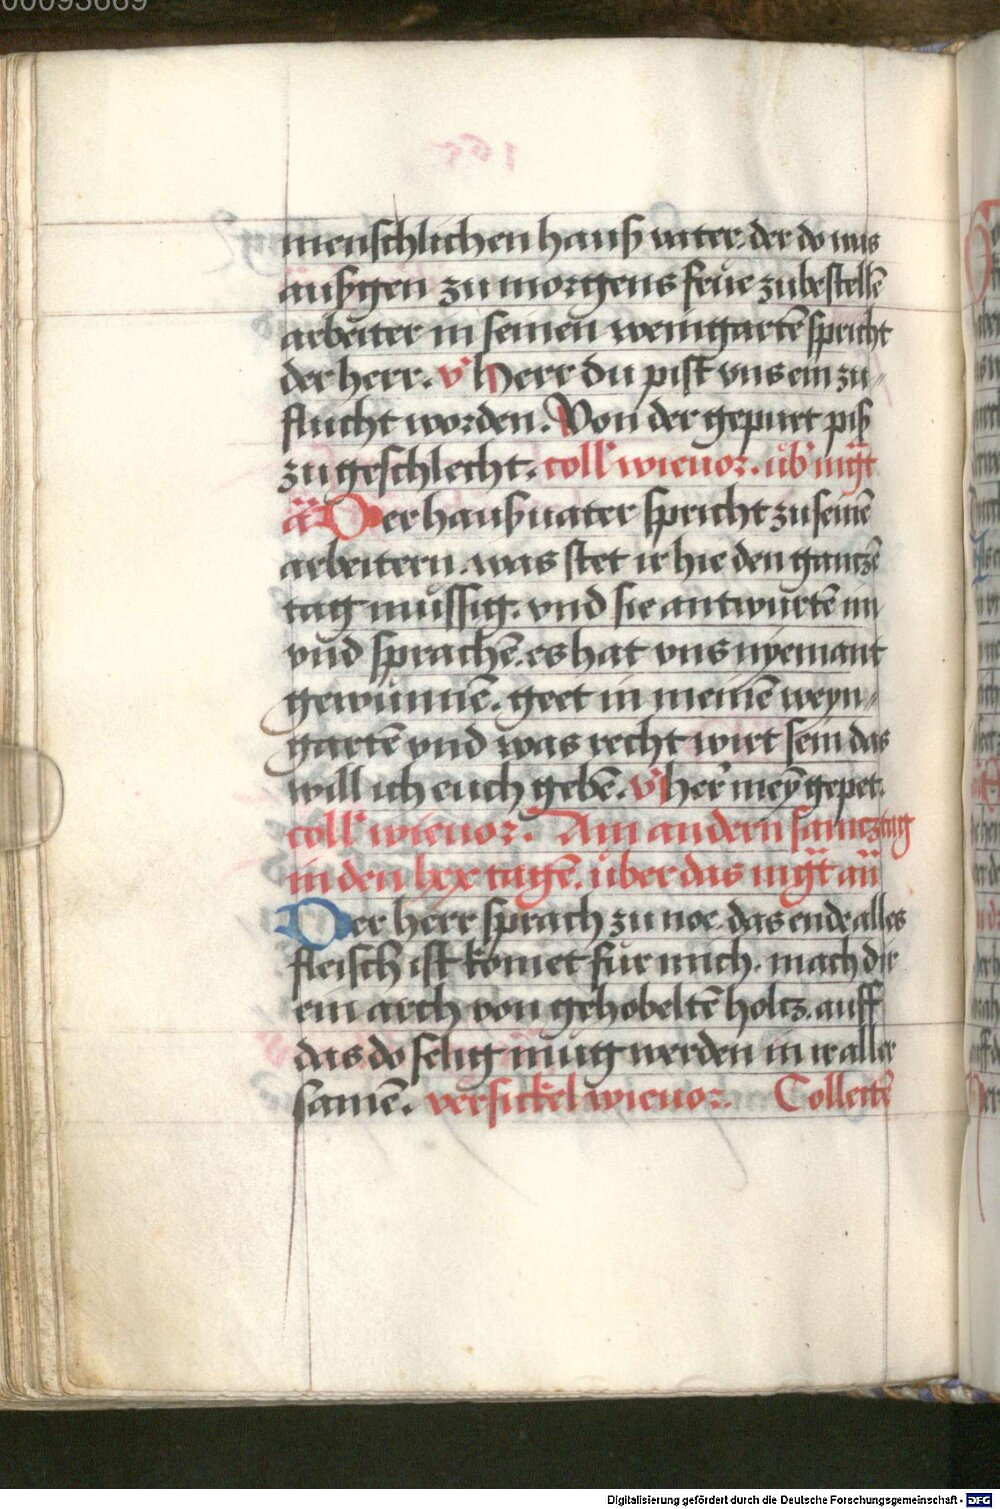 00093669
menschlichen hauß vater. der do was
außgen zu morgens frue zubestellē
arbeiter in seinen weingartē spricht
der herr. v̕ Herr du pist vns ein zu⸗
flucht worden. Von der gepurt piß
zu geschlecht. coll̕ wieuor. üb̕ mg̅t
a̅ Der haußuater spricht zu seinē
arbeitern. was stet ir hie den gantzē
tag müssig. vnd sie antwurtē im
vnd sprachē. es hat vns nyemant
gewunnē. geet in meinē weyn⸗
gartē vnd was recht wirt sein das
will ich euch gebē. v̕ her̕ mey̅ gepet.
coll̕ wieuor. Am andern samcztag
in den lxx tagē. über das mg̅t an̄
Der herr sprach zu noe. das ende alles
fleisch ist komet für mich. mach dir
ein arch von gehobeltē holtz. auff
das do selig mug werden in ir aller
samē. versickel wieuor. Collectē
Digitalisierung gefördert durch die Deutsche Forschungsgemeinschaft - DFG